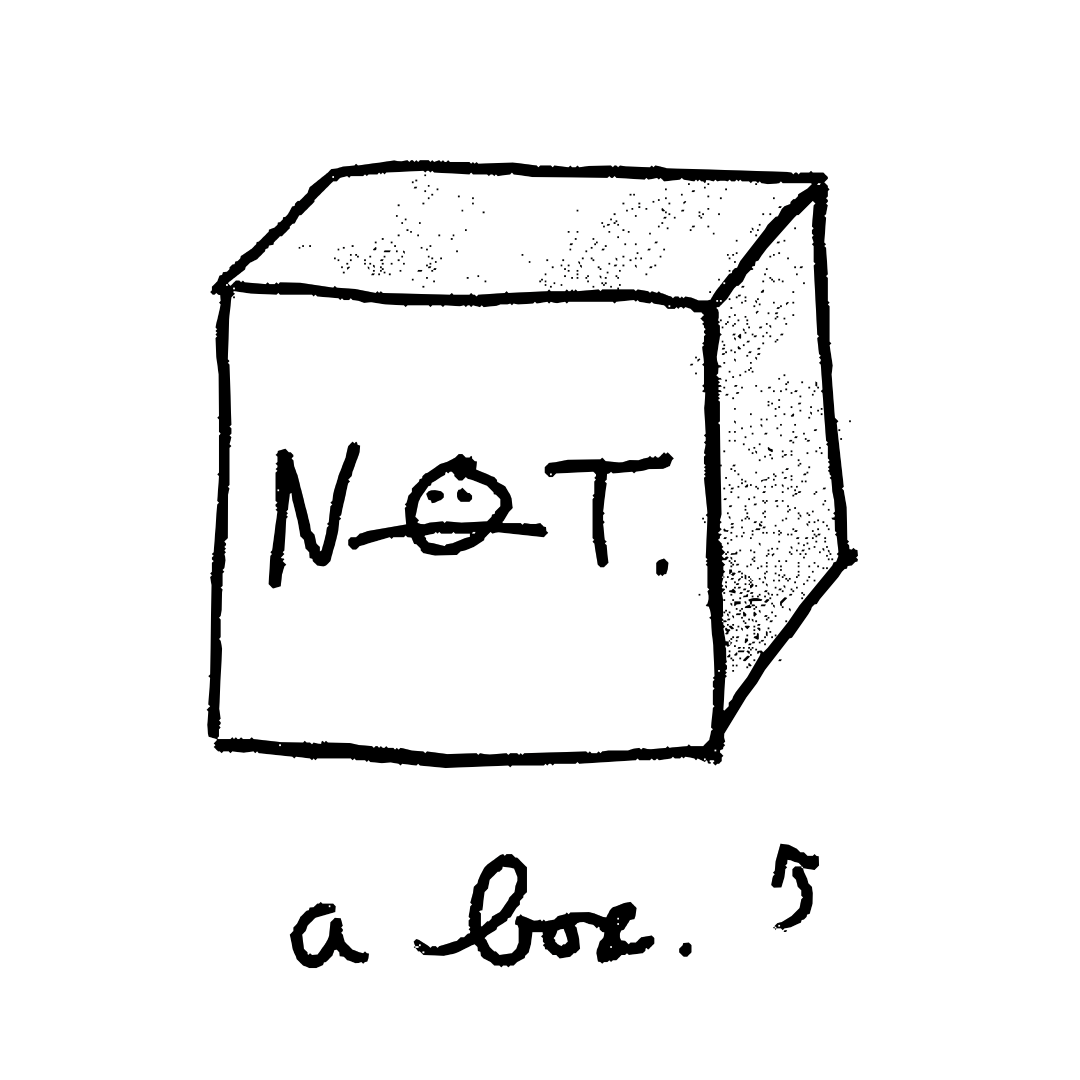 NOT.
a box.